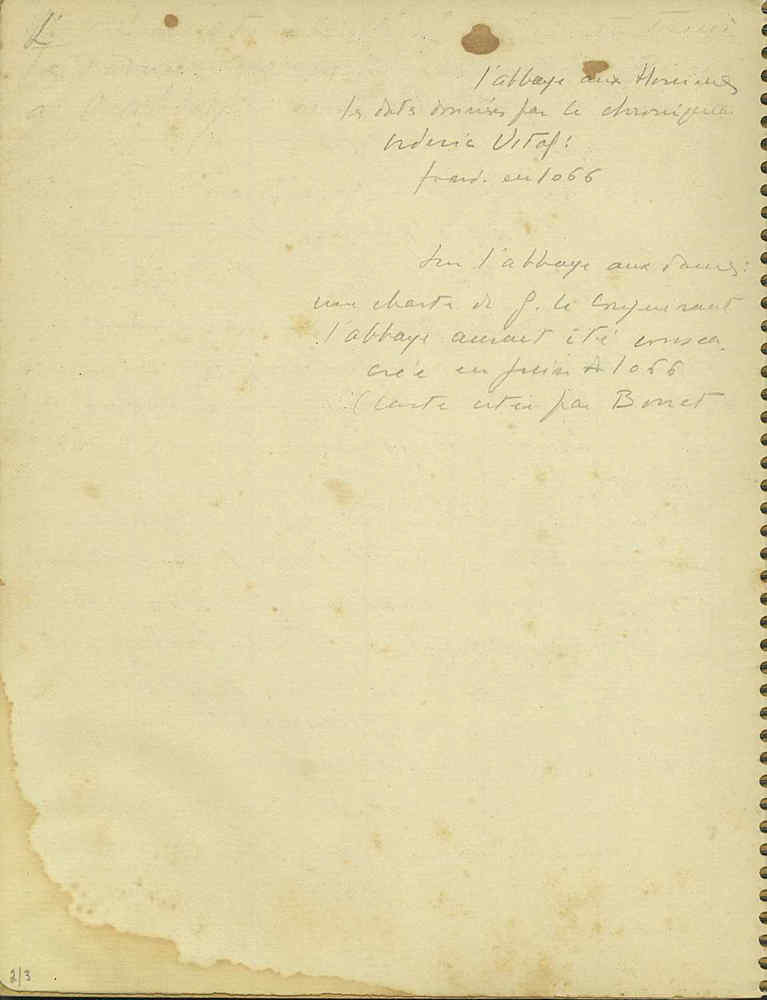 L'
l'abbaye aux Hommes
les dates données par le chroniqueur
Orderic Vital :
fond. en 1066
Sur l'abbaye aux dames :
une charte de G. le Conquérant
l'abbaye aurait été consa
crée en juin 1066
(charte citée par Bouet
2/3